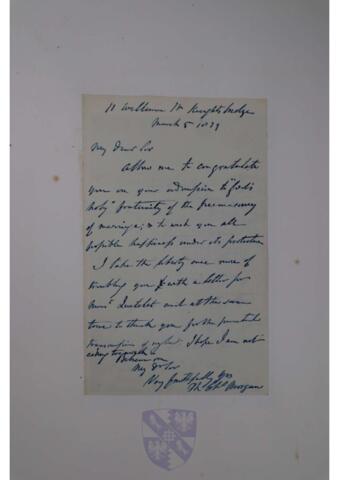 11 William St Knightsbridge
March 5 1839
My Dear Sir
Allow me to congratulate
you on your admission to
holy fraternity of the freemasonry
of marriage; & to wish you all
possible happiness under its protection
I take the liberty once more of
troubling you with a letter for
Monsr Quetelet and at the same
time to thank you for the punctual
transmission of my last I hope I am not
Believe me
My Dr Sir
Very faithfully yrs
Morgan